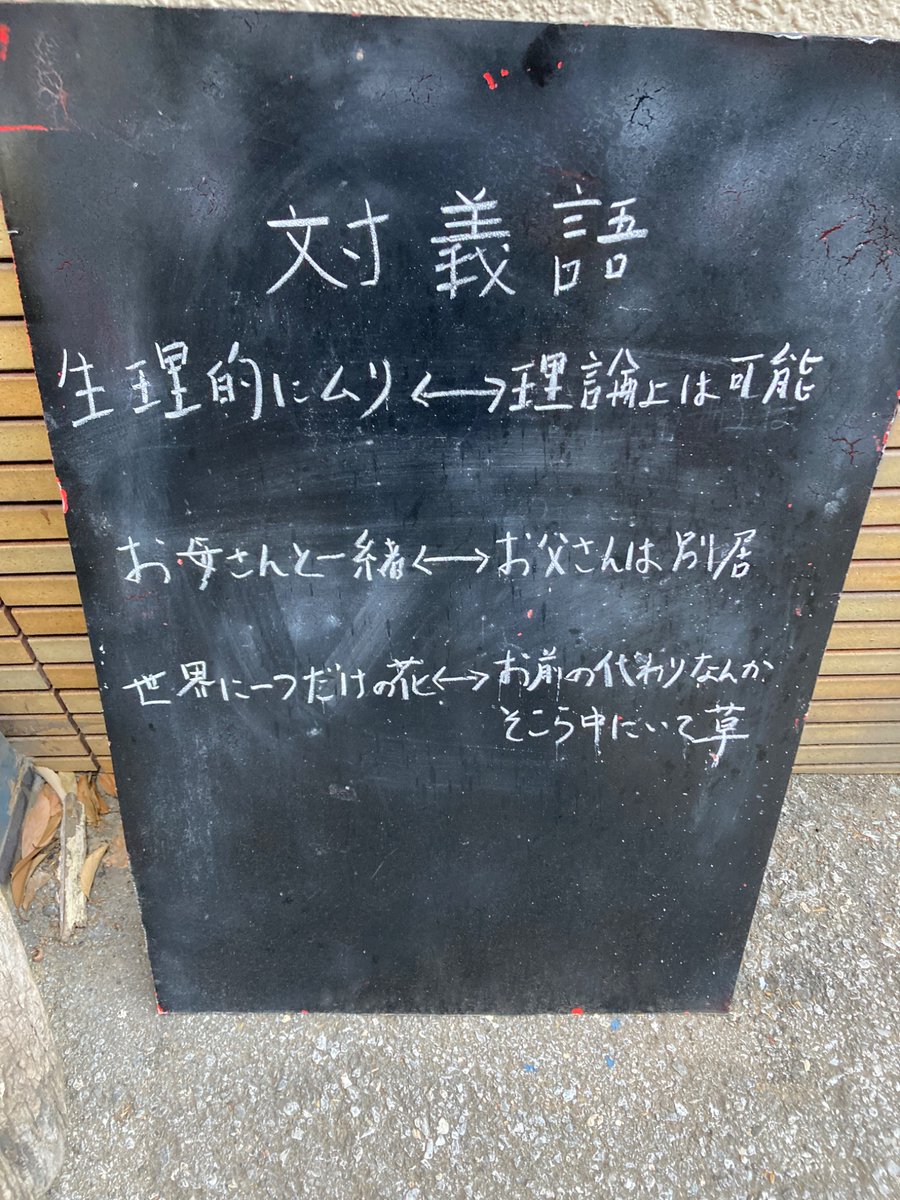 対義語
生理的にムリ⟷理論上は可能
お母さんと一緒⟷お父さんは別居
世界に一つだけの花⟷お前の代わりなんか
そこら中にいて草